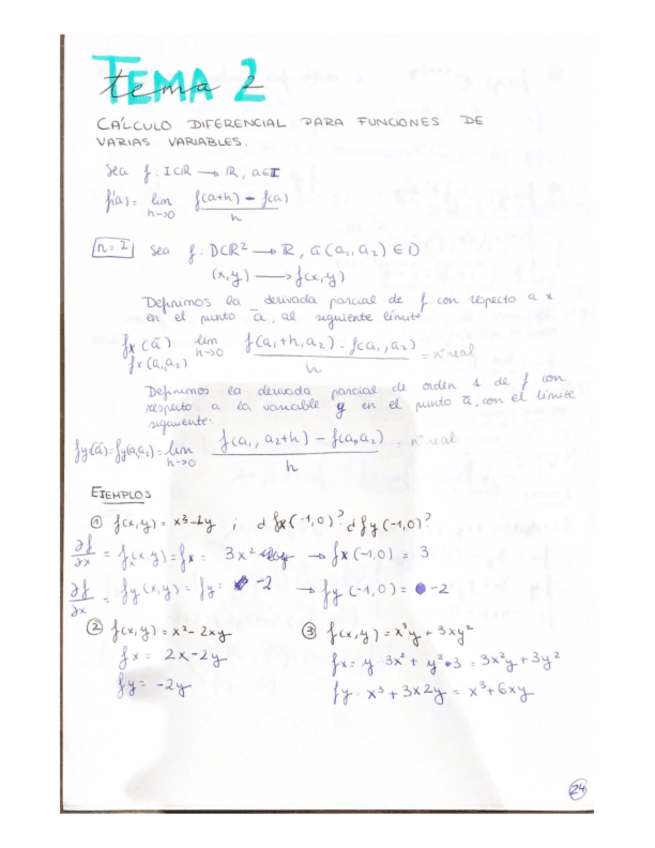 TEMA 2
tema 2
CÁLCULO DIFERENCIAL PARA FUNCIONES DE
VARIAS VARIABLES.
Sea f: I⊂R → R, a∈I
f'(a) = lim h→0 f(a+h) - f(a) / h
n=2 Sea f: D⊂R² → R, ā(a₁,a₂) ∈ D
(x,y) → f(x,y)
Definimos la derivada parcial de f con respecto a x
en el punto ā, al siguiente límite
fx(ā) lim h→0 f(a₁+h,a₂) - f(a₁,a₂) / h = nº real
fx(a₁,a₂)
Definimos la derivada parcial de orden 1 de f con
respecto a la variable y en el punto ā, con el límite
siguiente:
fy(ā)=fy(a₁,a₂)= lim h→0 f(a₁, a₂+h) - f(a₁,a₂) / h = nº real
EJEMPLOS
① f(x,y) = x³-2y ; ¿fx(-1,0)? ¿fy(-1,0)?
∂f/∂x = fx(x,y)=fx = 3x² → fx(-1,0) = 3
∂f/∂x = fy(x,y) = fy = -2 → fy(-1,0) = -2
② f(x,y) = x²-2xy
fx = 2x-2y
fy = -2y
③ f(x,y) = x³y + 3xy²
fx = y 3x² + y²·3 = 3x²y + 3y²
fy = x³ + 3x2y = x³+6xy
24